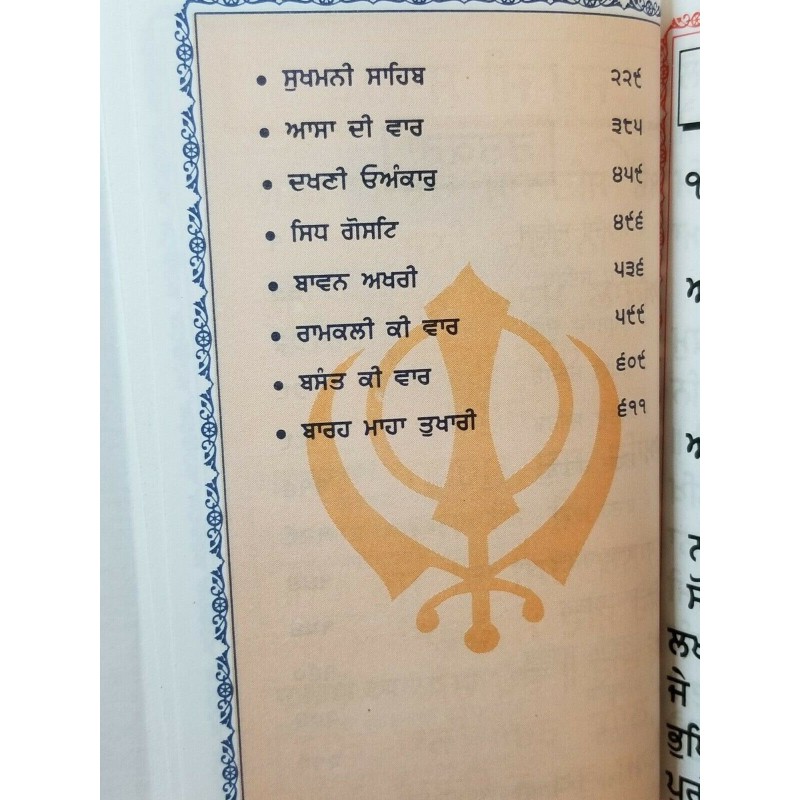 • ਸੁਖਮਨੀ ਸਾਹਿਬ ੨੨੯
• ਆਸਾ ਦੀ ਵਾਰ ੩੮੫
• ਦਖਣੀ ਓਅੰਕਾਰੁ ੪੫੯
• ਸਿਧ ਗੋਸਟਿ ੪੯੬
• ਬਾਵਨ ਅਖਰੀ ੫੩੬
• ਰਾਮਕਲੀ ਕੀ ਵਾਰ ੫੯੯
• ਬਸੰਤ ਕੀ ਵਾਰ ੬੦੯
• ਬਾਰਹ ਮਾਹਾ ਤੁਖਾਰੀ ੬੧੧